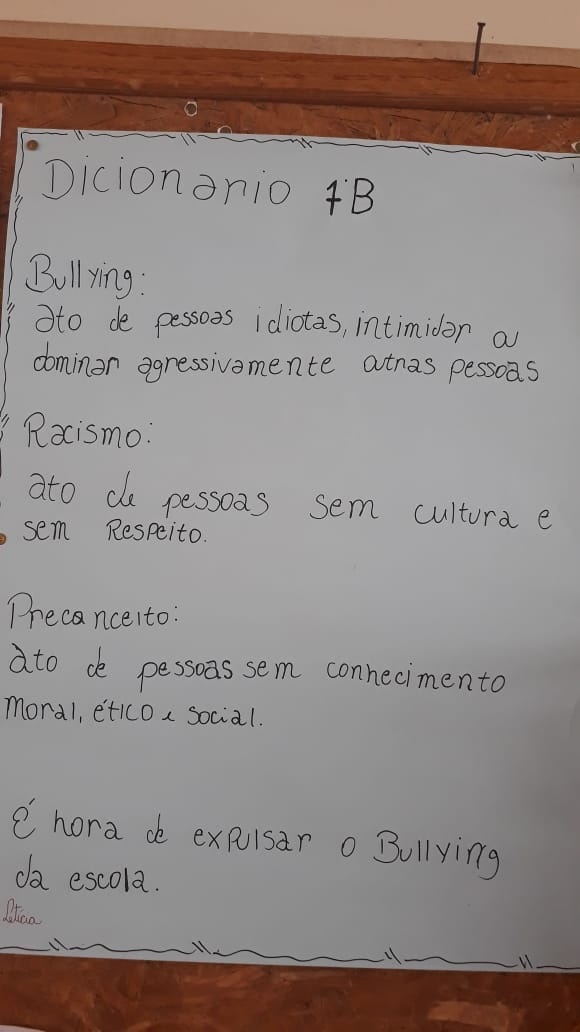 Dicionario 7B
Bullying:
ato de pessoas idiotas, intimidar a
dominar agressivamente outras pessoas
Racismo:
ato de pessoas sem cultura e
sem Respeito.
Preconceito:
ato de pessoas sem conhecimento
moral, ético e social.
É hora de expulsar o Bullying
da escola.
Letícia